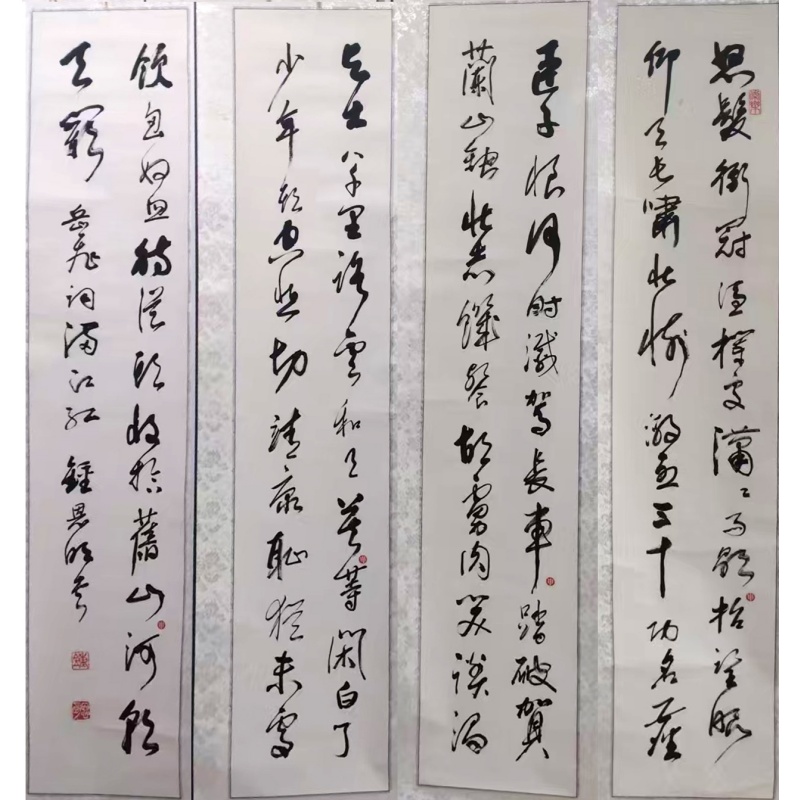 怒髮衝冠憑欄處瀟々雨歇抬望眼
仰天長嘯壯懷激烈三十功名塵
臣子恨何時滅駕長車踏破賀
蘭山缺壯志饑餐胡虜肉笑談渴
与土八千里路雲和月莫等閑白了
少年頭空悲切靖康恥猶未雪
飲匈奴血待從頭收拾舊山河朝
天闕 岳飛詞滿江紅 鍾恩明書